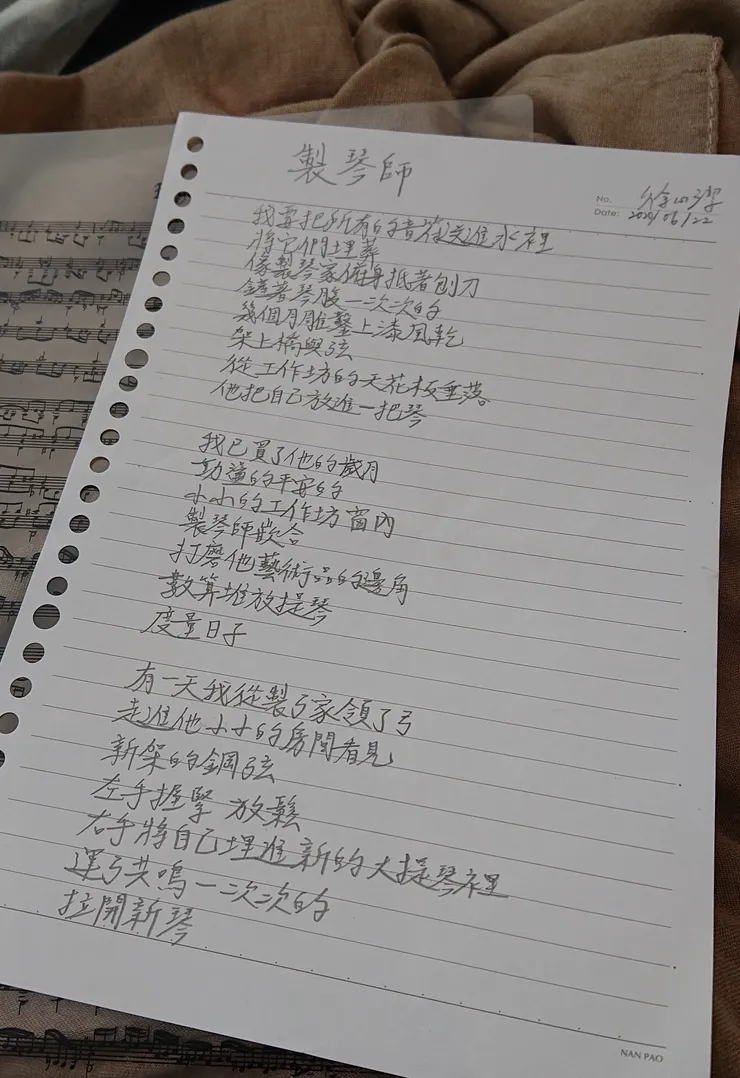 製琴師
No. 徐
Date: 2024/06/22
我要把所有的音符送進水裡
將它們埋葬
像製琴家傾身抵著刨刀
著琴腹一次次的
幾個月雕鑿上漆風乾
架上橋與弦
從工作坊的天花板垂落
他把自己放進一把琴
我已買了他的歲月
的平安的
小小的工作坊窗內
製琴師嵌合
打磨他藝術品的邊角
數算堆放提琴
度量日子
有一天我從製弓家領了弓
走進他小小的房間看見
新架的鋼弦
左手握緊 放鬆
右手將自己埋進新的大提琴裡
運弓共鳴一次次的
拉開新琴
NAN PAO